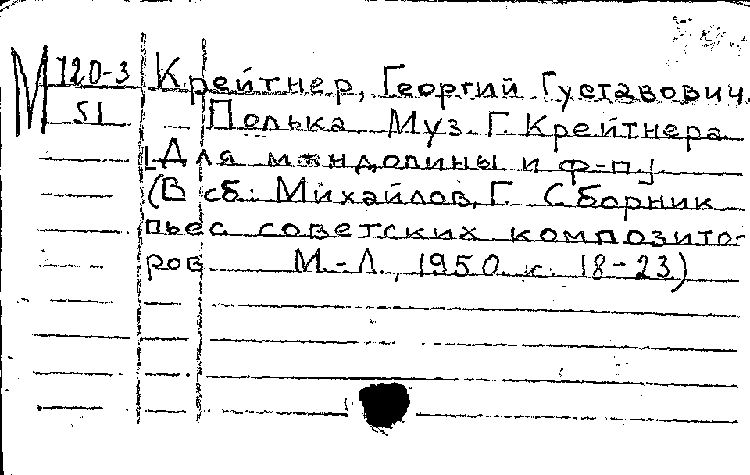 М 120-3 Крейтнер, Георгий Густавович.
51 Полька Муз. Г. Крейтнера
[Для мандолины и ф-п.]
(В сб: Михайлов, Г. Сборник
пьес советских композито-
ров М.-Л., 1950 с. 18-23)